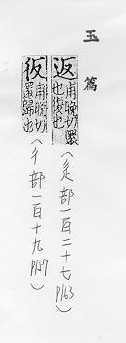 玉篇
返
甫晚切還
也復也
(辵部一百二十七 P163)
甫晚切
還歸也
(彳部一百十九)